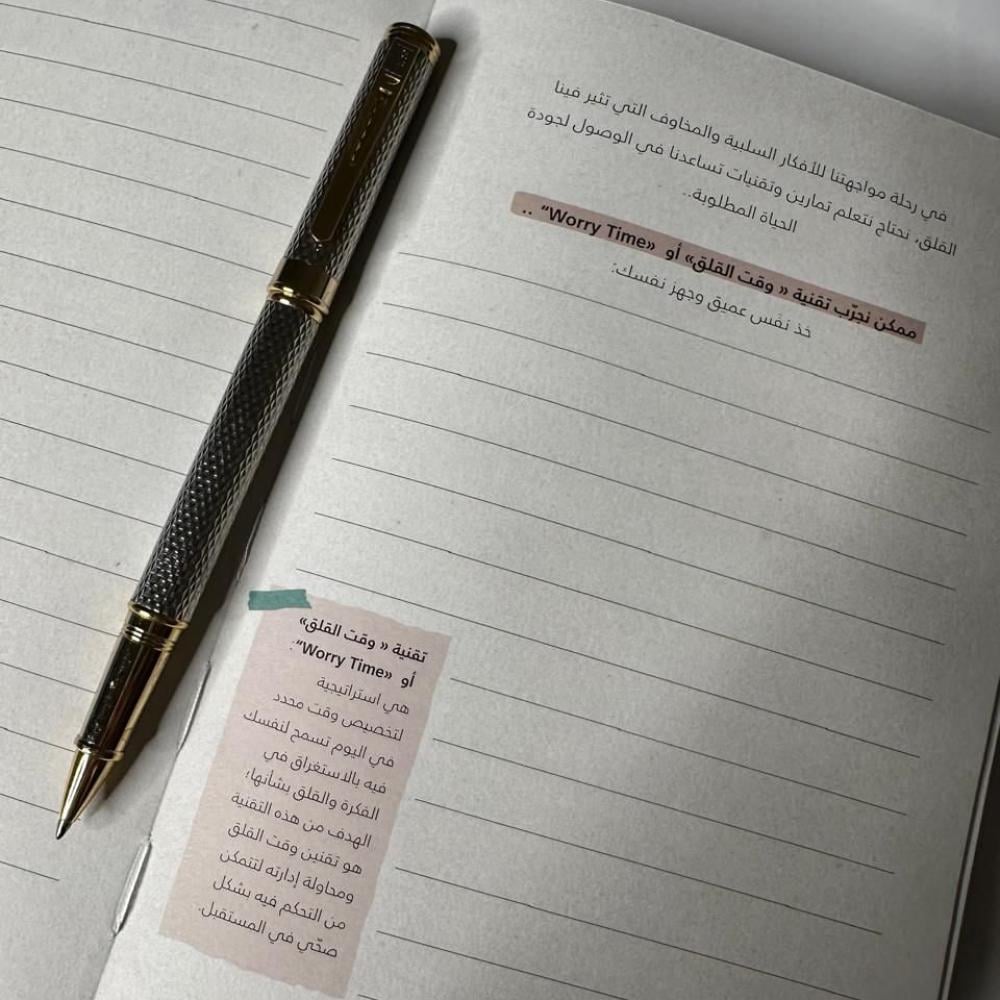 في رحلة مواجهتنا للأفكار السلبية والمخاوف التي تثير فينا
القلق، نحتاج نتعلم تمارين وتقنيات تساعدنا في الوصول لجودة
الحياة المطلوبة..
ممكن نجرّب تقنية « وقت القلق» أو «Worry Time“ ..
خذ نفَس عميق وجهز نفسك:
تقنية « وقت القلق»
أو «Worry Time“:
هي استراتيجية
لتخصيص وقت محدد
في اليوم تسمح لنفسك
فيه بالاستغراق في
الفكرة والقلق بشأنها؛
الهدف من هذه التقنية
هو تقنين وقت القلق
ومحاولة إدارته لتتمكن
من التحكم فيه بشكل
صحّي في المستقبل.